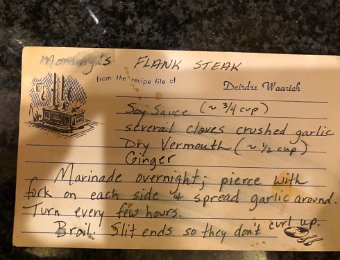 Mommy's FLANK STEAK
from the recipe file of Deirdre Waarich
Soy Sauce (~ 3/4 cup)
several cloves crushed garlic
Dry Vermouth (~ 1/2 cup)
Ginger
Marinade overnight; pierce with
fork on each side & spread garlic around.
Turn every few hours.
Broil. Slit ends so they don't curl up.